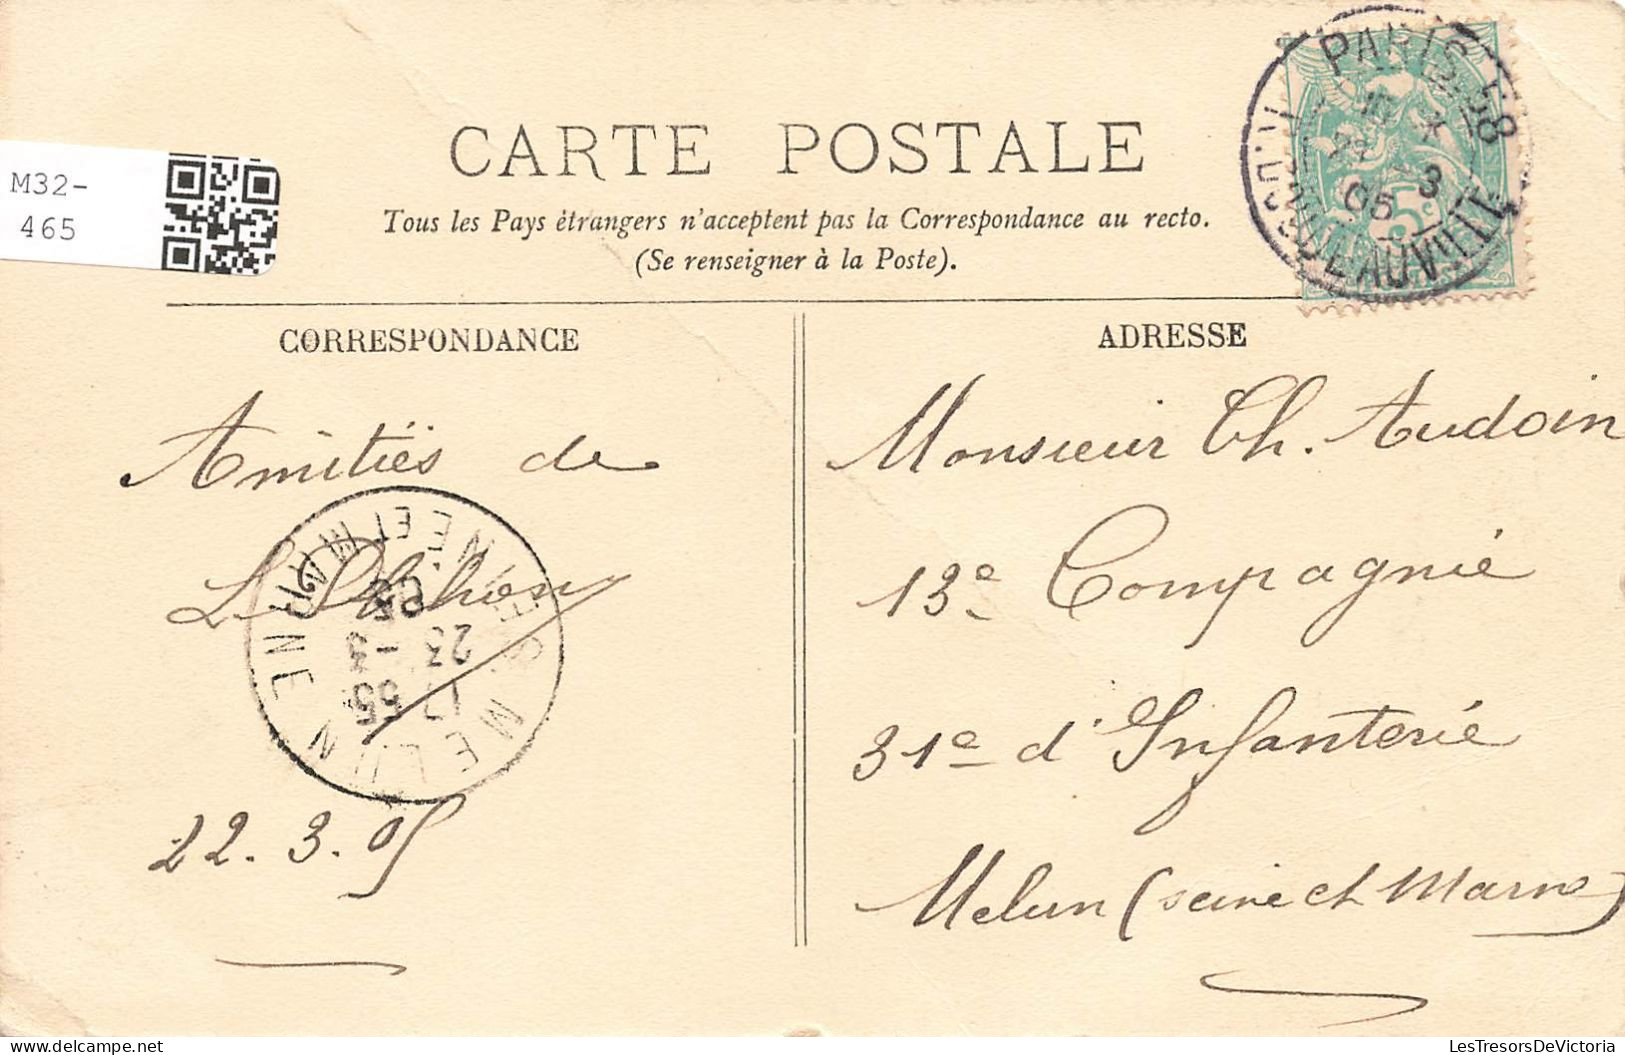 M32-
465
CARTE POSTALE
Tous les Pays étrangers n'acceptent pas la Correspondance au recto.
(Se renseigner à la Poste).
PARIS 58
3
05
5c
CORRESPONDANCE
ADRESSE
Amitiés de
L.
22.3.05
MELUN
SEINE ET MARNE
55
23 -3
05
Monsieur Ch. Audoin
13e Compagnie
31e d'Infanterie
Melun (seine et Marne)
LesTresorsDeVictoria
LesTresorsDeVictoria.com